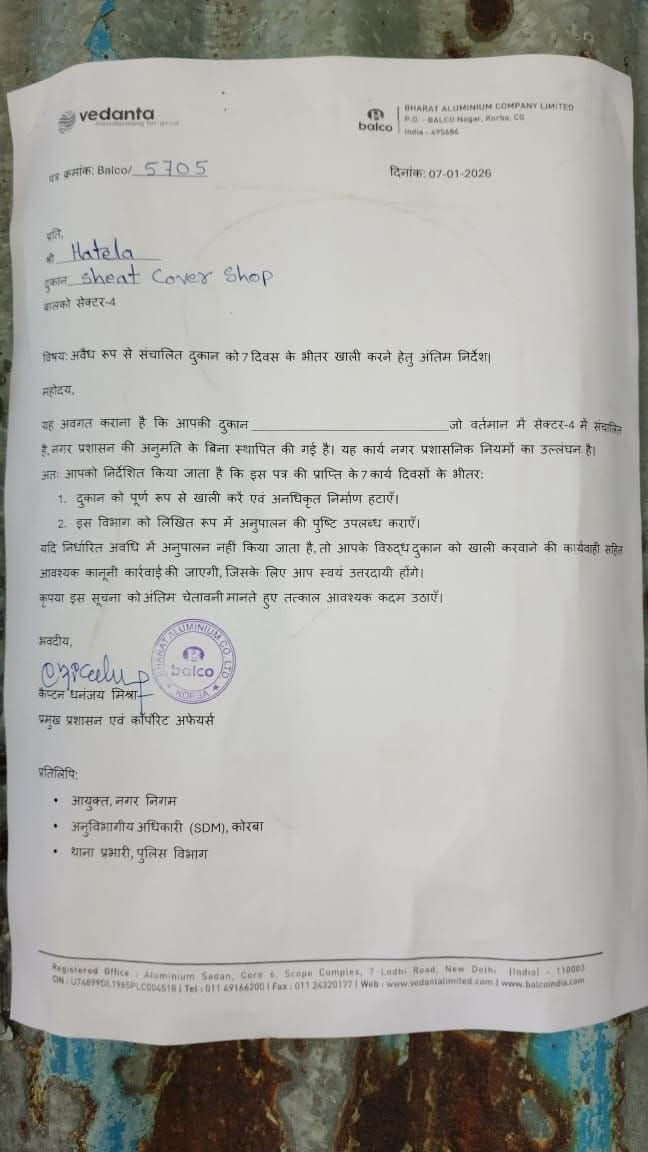 vedanta
transforming for good
balco
BHARAT ALUMINIUM COMPANY LIMITED
P.O. - BALCO Nagar, Korba, CG
India - 495684
पत्र क्रमांक: Balco/ 5705
दिनांक: 07-01-2026
प्रति,
श्री Hatela
दुकान Sheat Cover Shop
बालको सेक्टर-4
विषय: अवैध रूप से संचालित दुकान को 7 दिवस के भीतर खाली करने हेतु अंतिम निर्देश।
महोदय,
यह अवगत कराना है कि आपकी दुकान ____________________ जो वर्तमान में सेक्टर-4 में संचालित
है, नगर प्रशासन की अनुमति के बिना स्थापित की गई है। यह कार्य नगर प्रशासनिक नियमों का उल्लंघन है।
अतः आपको निर्देशित किया जाता है कि इस पत्र की प्राप्ति के 7 कार्य दिवसों के भीतर:
1. दुकान को पूर्ण रूप से खाली करें एवं अनधिकृत निर्माण हटाएँ।
2. इस विभाग को लिखित रूप में अनुपालन की पुष्टि उपलब्ध कराएँ।
यदि निर्धारित अवधि में अनुपालन नहीं किया जाता है, तो आपके विरुद्ध दुकान को खाली करवाने की कार्यवाही सहित
आवश्यक कानूनी कार्रवाई की जाएगी, जिसके लिए आप स्वयं उत्तरदायी होंगे।
कृपया इस सूचना को अंतिम चेतावनी मानते हुए तत्काल आवश्यक कदम उठाएँ।
भवदीय,
BHARAT ALUMINIUM CO. LTD.
balco
KORBA
कैप्टन धनंजय मिश्रा
प्रमुख प्रशासन एवं कॉर्पोरेट अफेयर्स
प्रतिलिपि:
• आयुक्त, नगर निगम
• अनुविभागीय अधिकारी (SDM), कोरबा
• थाना प्रभारी, पुलिस विभाग
Registered Office : Aluminium Sadan, Core 6, Scope Complex, 7 Lodhi Road, New Delhi (India) - 110003
CIN : U74899DL1965PLC004518 | Tel : 011 49166200 | Fax : 011 24320177 | Web : www.vedantalimited.com | www.balcoindia.com